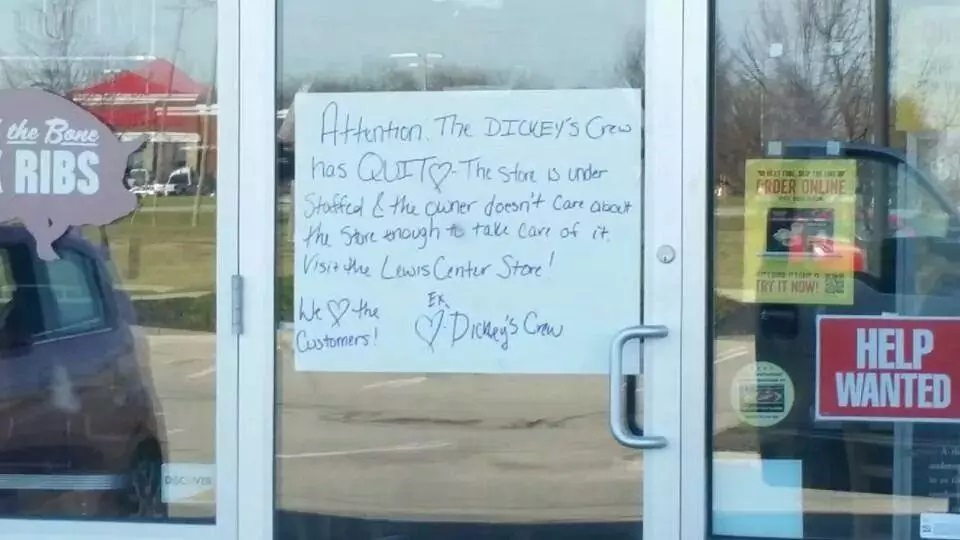 the Bone
RIBS
Attention. The DICKEY'S Crew
has QUIT♡. The store is under
Staffed & the owner doesn't care about
the store enough to take care of it.
Visit the Lewis Center Store!
We ♡ the
Customers!
Ex
♡ - Dickey's Crew
ORDER ONLINE
TRY IT NOW!
HELP
WANTED
DISCOVER